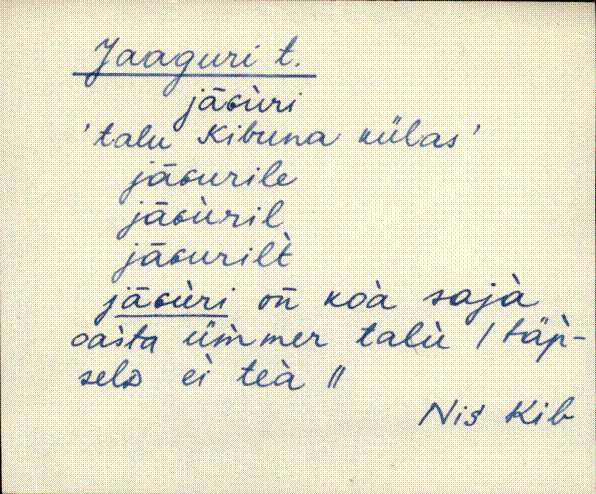 Jaaguri t.
jāɢùri
'talu Kibuna külas'
jāɢurile
jāɢùril
jāɢurilt̀
jāɢùri on̄ koà sajà
oàsta üm̀mer talù / täp̀-
selᴅ eì teà //
Nis Kib